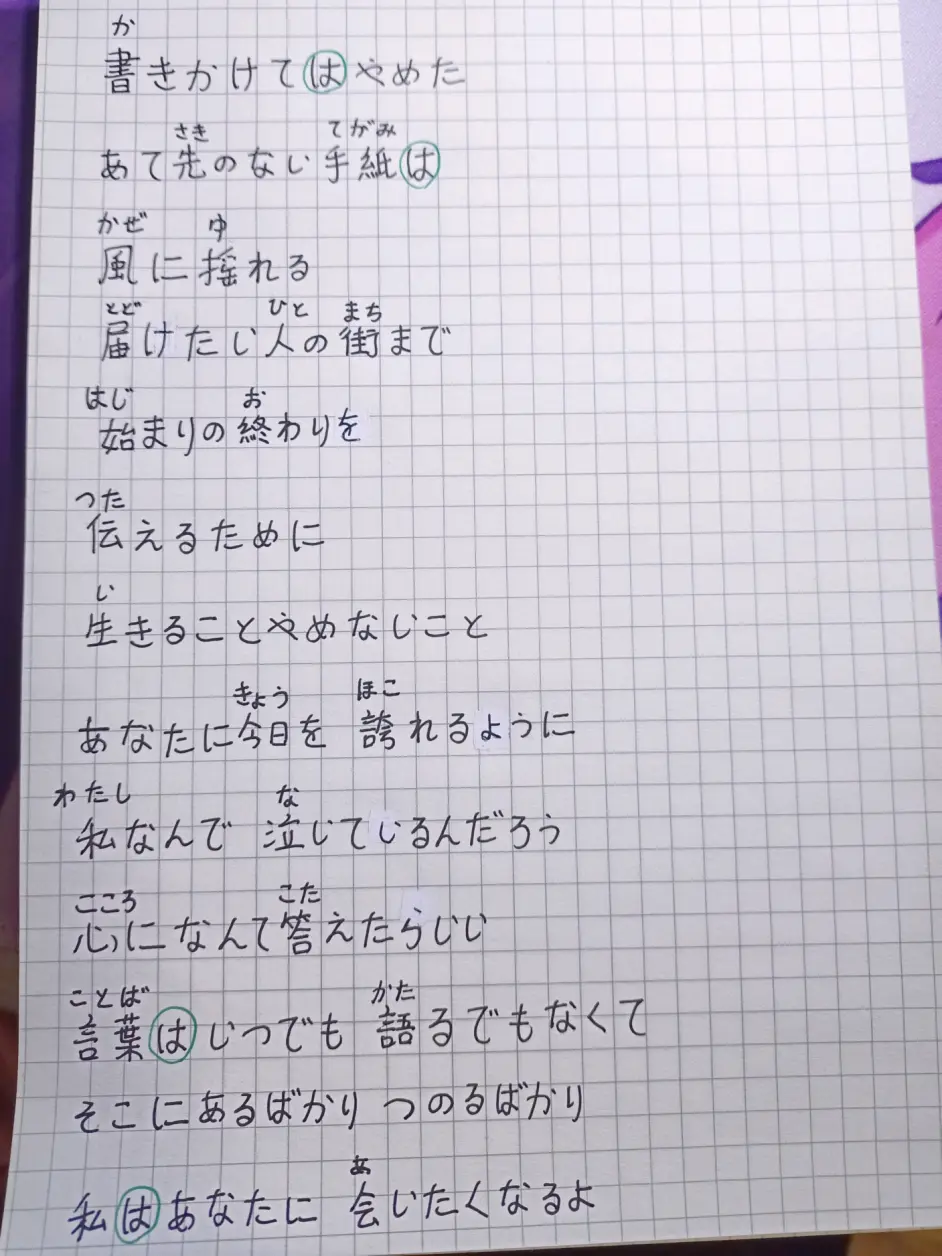 か
書きかけてはやめた
さき てがみ
あて先のない手紙は
かぜ ゆ
風に揺れる
とど ひと まち
届けたい人の街まで
はじ お
始まりの終わりを
つた
伝えるために
い
生きることやめないこと
きょう ほこ
あなたに今日を 誇れるように
わたし な
私なんで 泣いているんだろう
こころ こた
心になんて答えたらいい
ことば かた
言葉はいつでも 語るでもなくて
そこにあるばかり つのるばかり
あ
私はあなたに 会いたくなるよ